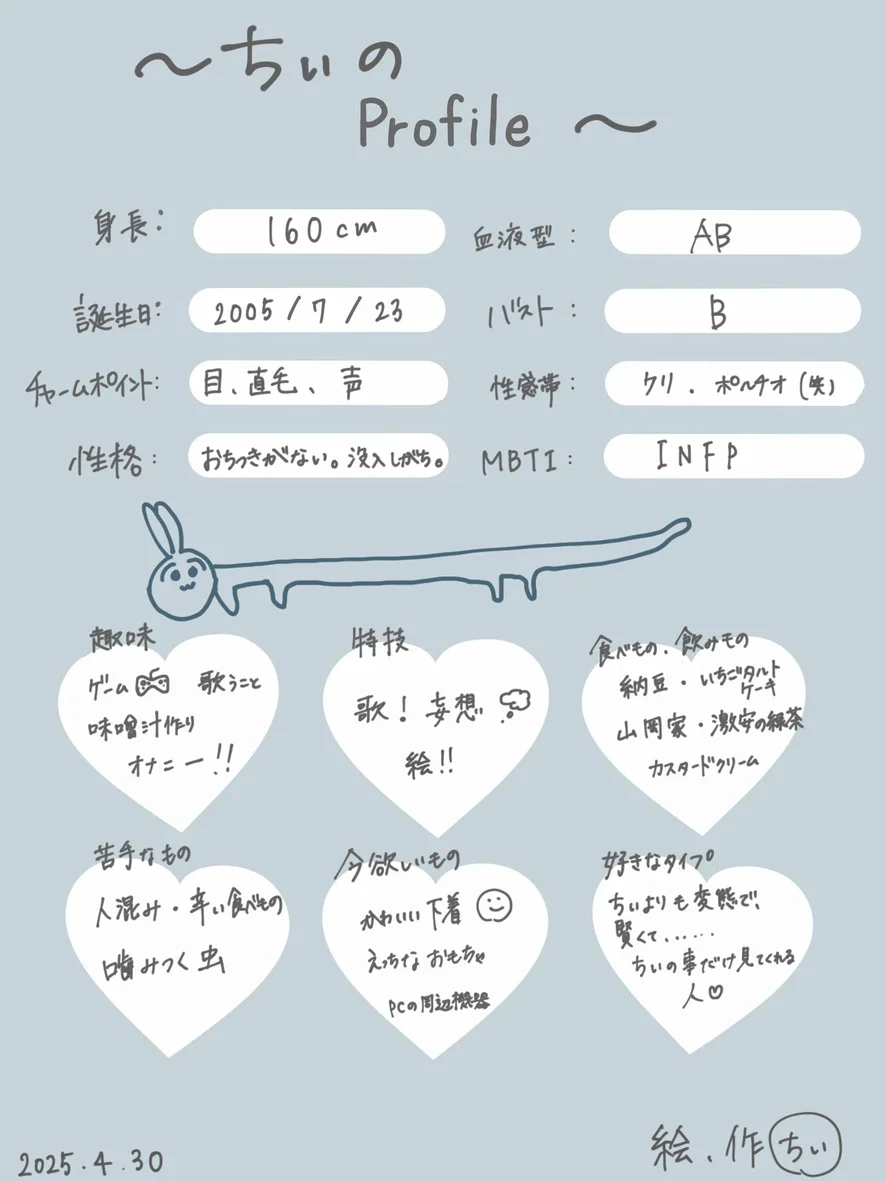 ～ちぃの
Profile～
身長：
160cm
血液型：
AB
誕生日：
2005/7/23
バスト：
B
チャームポイント：
目、直毛、声
性感帯：
クリ．ポルチオ(笑)
性格：
おちつきがない。没入しがち。
MBTI：
INFP
趣味
ゲーム 歌うこと
味噌汁作り
オナニー!!
特技
歌！妄想
絵!!
食べもの、飲みもの
納豆・いちごタルト
ケーキ
山岡家・激安の緑茶
カスタードクリーム
苦手なもの
人混み・辛い食べもの
噛みつく虫
今欲しいもの
かわいい下着
えっちなおもちゃ
PCの周辺機器
好きなタイプ
ちぃよりも変態で、
賢くて、……
ちぃの事だけ見てくれる
人♡
2025.4.30
絵、作 ちぃ